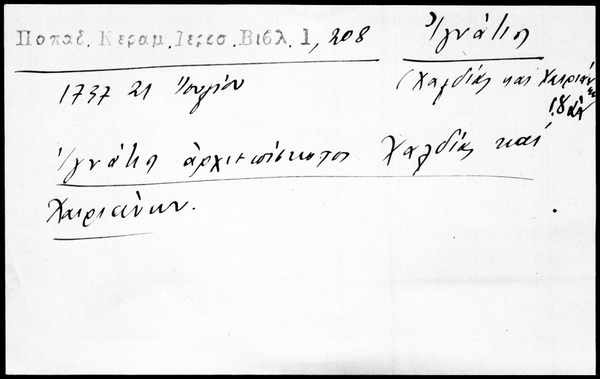 Παπαδ. Κεραμ. Ιερεσ. Βιβλ. 1, 208
Ἰγνάτιος
(Χαλδίας καὶ Χεριάνων
18 αἰ
1737 21 Ἰουλίου
Ἰγνάτιος ἀρχιεπίσκοπος Χαλδίας καὶ
Χαιριάνων.